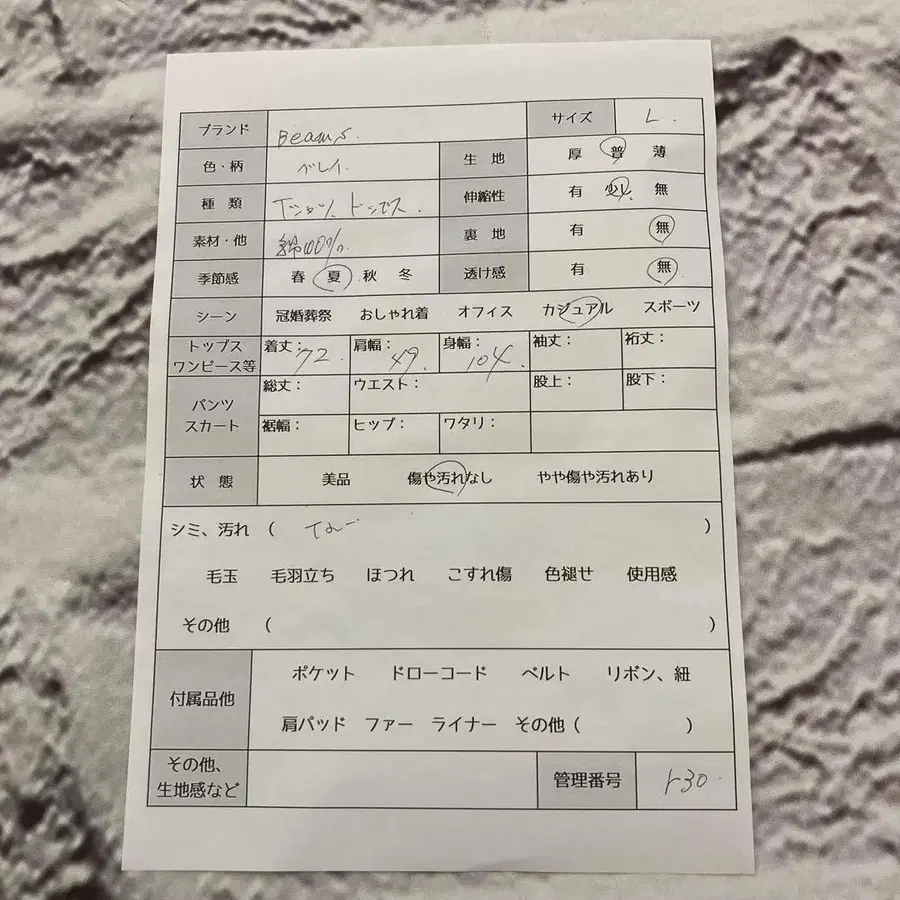 ブランド Beams. サイズ L.
色・柄 グレイ. 生地 厚 普 薄
種類 Tシャツ. トップス. 伸縮性 有 少し 無
素材・他 綿100%. 裏地 有 無
季節感 春 夏 秋 冬 透け感 有 無
シーン 冠婚葬祭 おしゃれ着 オフィス カジュアル スポーツ
トップス ワンピース等 着丈：72. 肩幅：49. 身幅：104. 袖丈： 裄丈：
パンツ スカート 総丈： ウエスト： 股上： 股下：
裾幅： ヒップ： ワタリ：
状態 美品 傷や汚れなし やや傷や汚れあり
シミ、汚れ （ ）
毛玉 毛羽立ち ほつれ こすれ傷 色褪せ 使用感
その他 （ ）
付属品他 ポケット ドローコード ベルト リボン、紐
肩パッド ファー ライナー その他（ ）
その他、
生地感など 管理番号 r30.